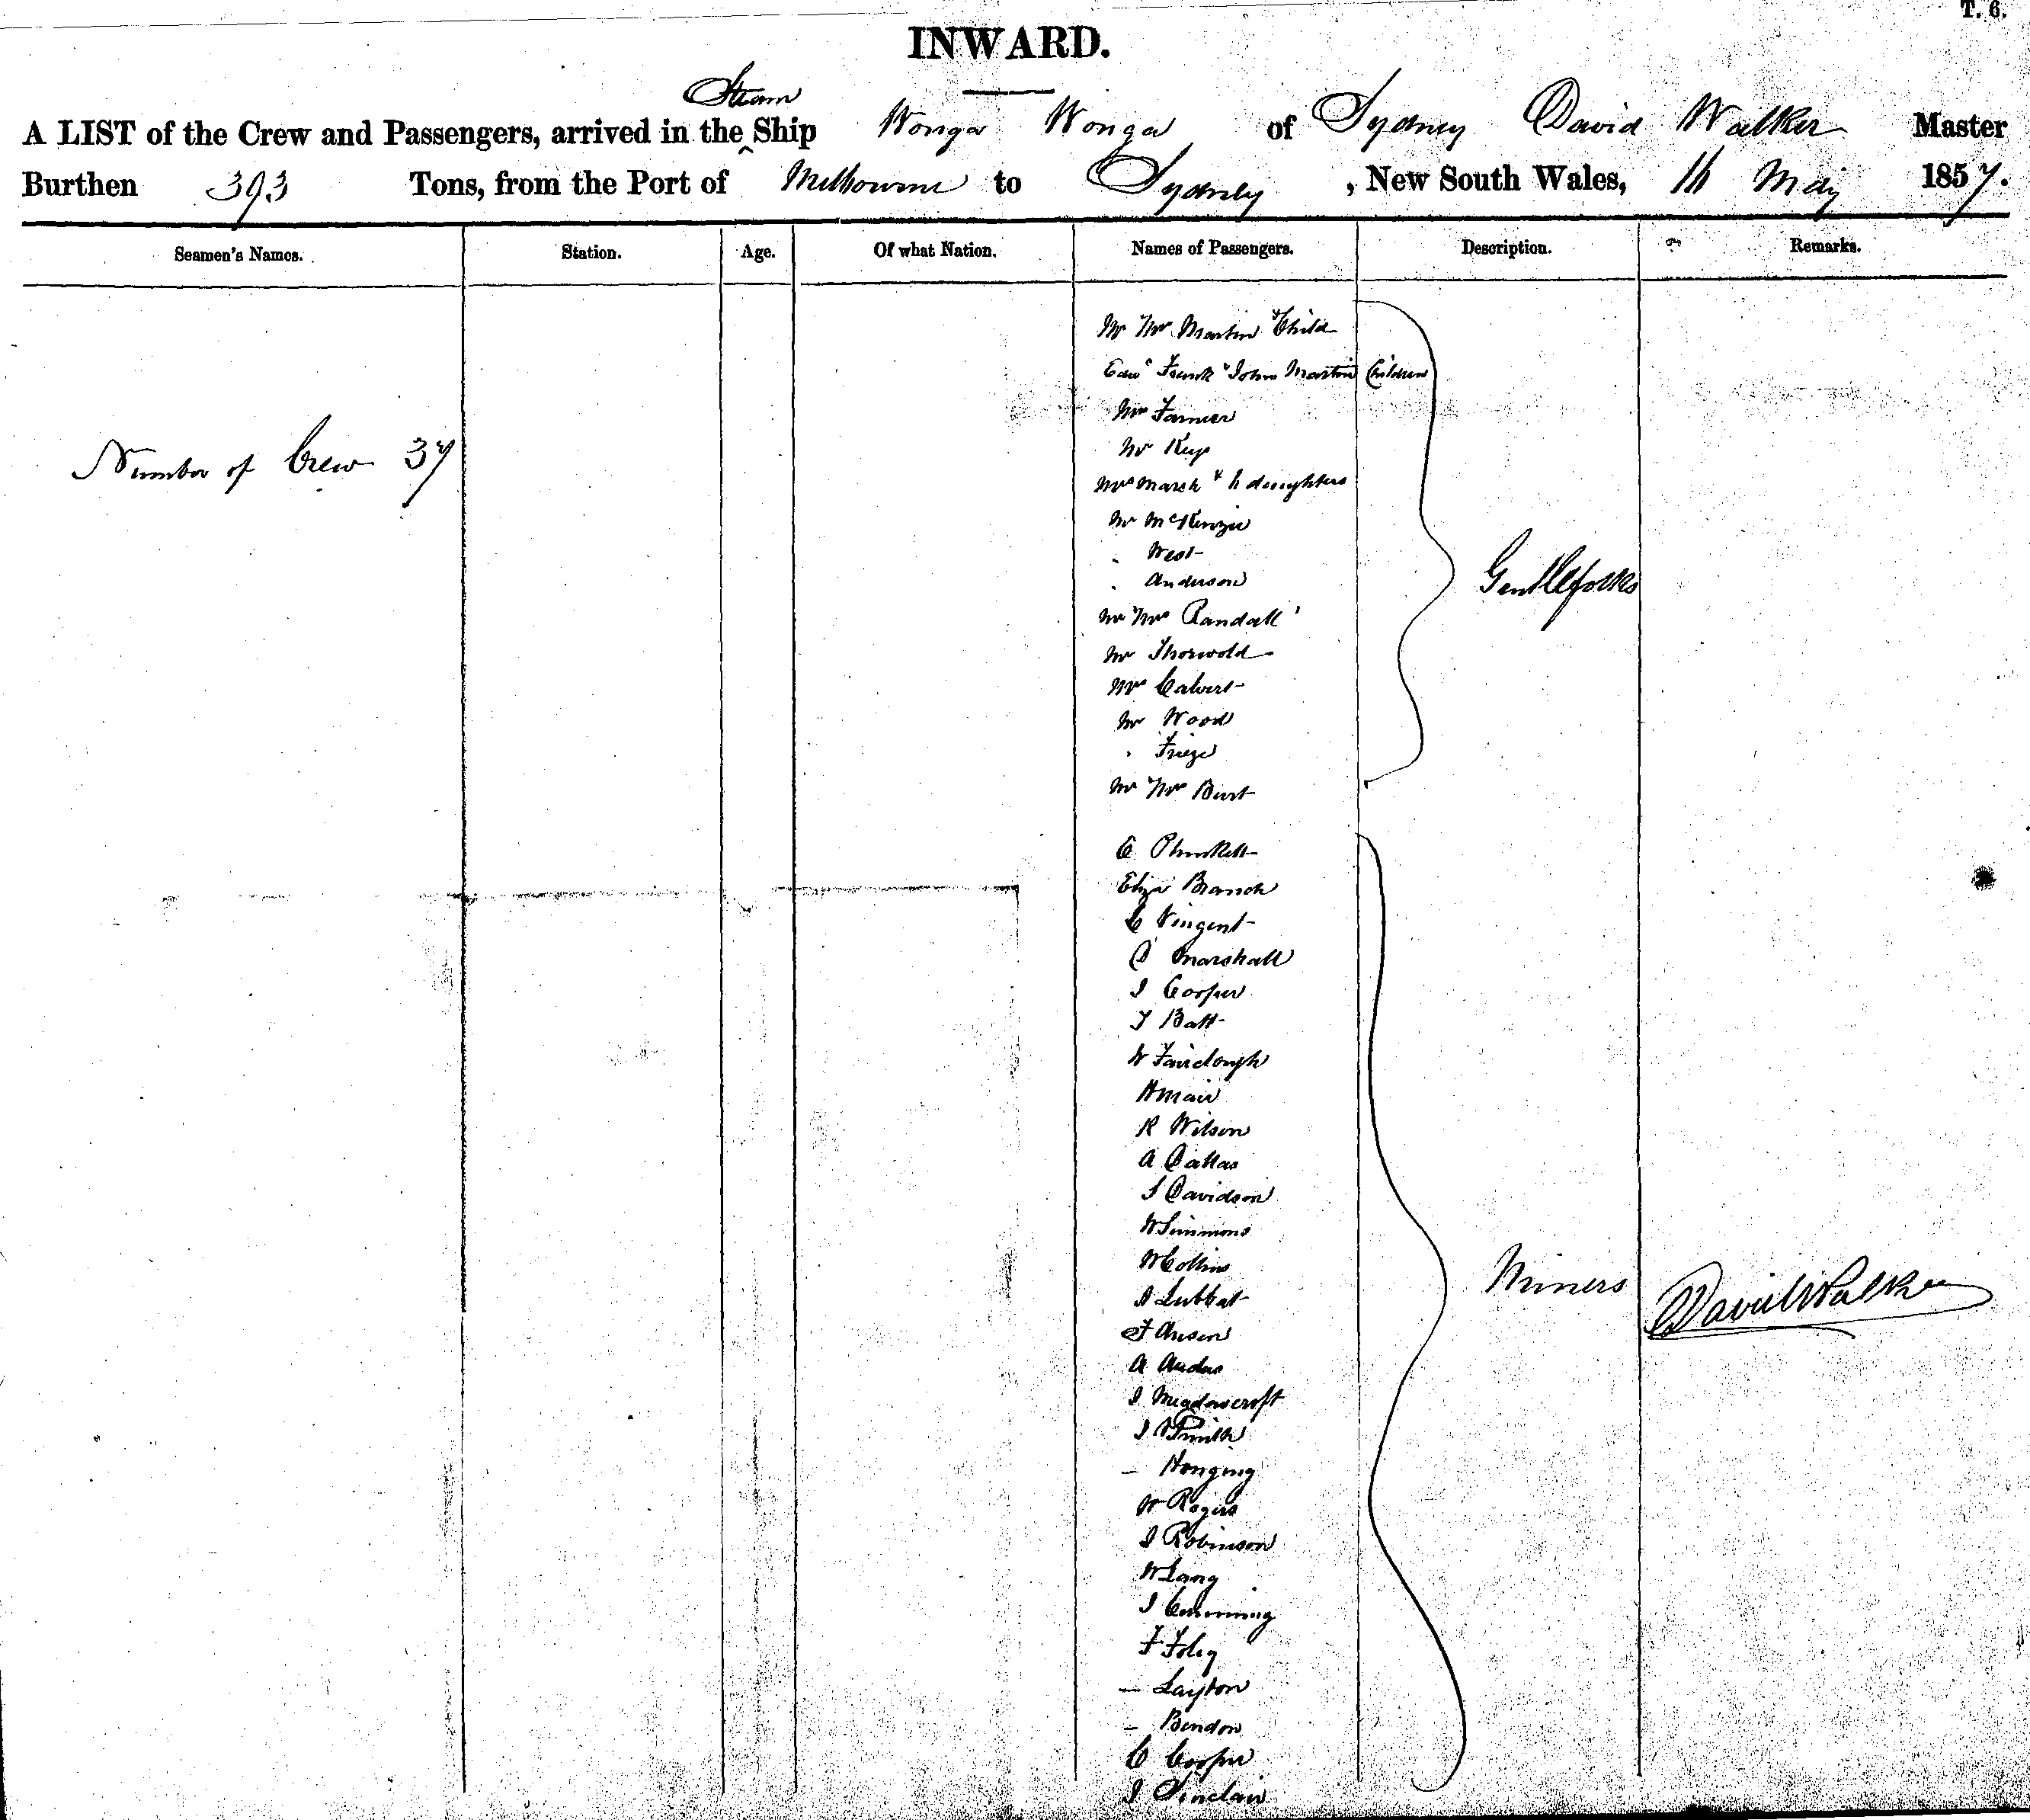 T. 6.
INWARD.
A LIST of the Crew and Passengers, arrived in the Steam Ship Wonga Wonga of Sydney David Walker Master
Burthen 393 Tons, from the Port of Melbourne to Sydney, New South Wales, May 1857.
Seamen's Names. Station. Age. Of what Nation. Names of Passengers. Description. Remarks.
Mr & Mrs Martin & Child
Edwd Frank & John Martin Children
Mrs Farmer
Number of Crew 37
Mr
Mrs March & daughters
Mr McKenzie
" West
" Anderson
Gentlefolks
Mr & Mrs Randall
Mr Thorwold
Mrs Calvert
Mr Wood
" Frieze
Mr & Mrs Burt
C Plunkett
Eliza Branch
C Vingent
D Marshall
J Cooper
T Batt
W Fairclough
H Mair
R Wilson
A Dallas
J Davidson
W Simmons
W Collins
Miners
David Walker
J
F
A
J Meadowcroft
J Smith
—
W Rogers
J Robinson
W Lang
J Cumming
F Foley
— Layton
— Bendon
C Cooper
J Sinclair